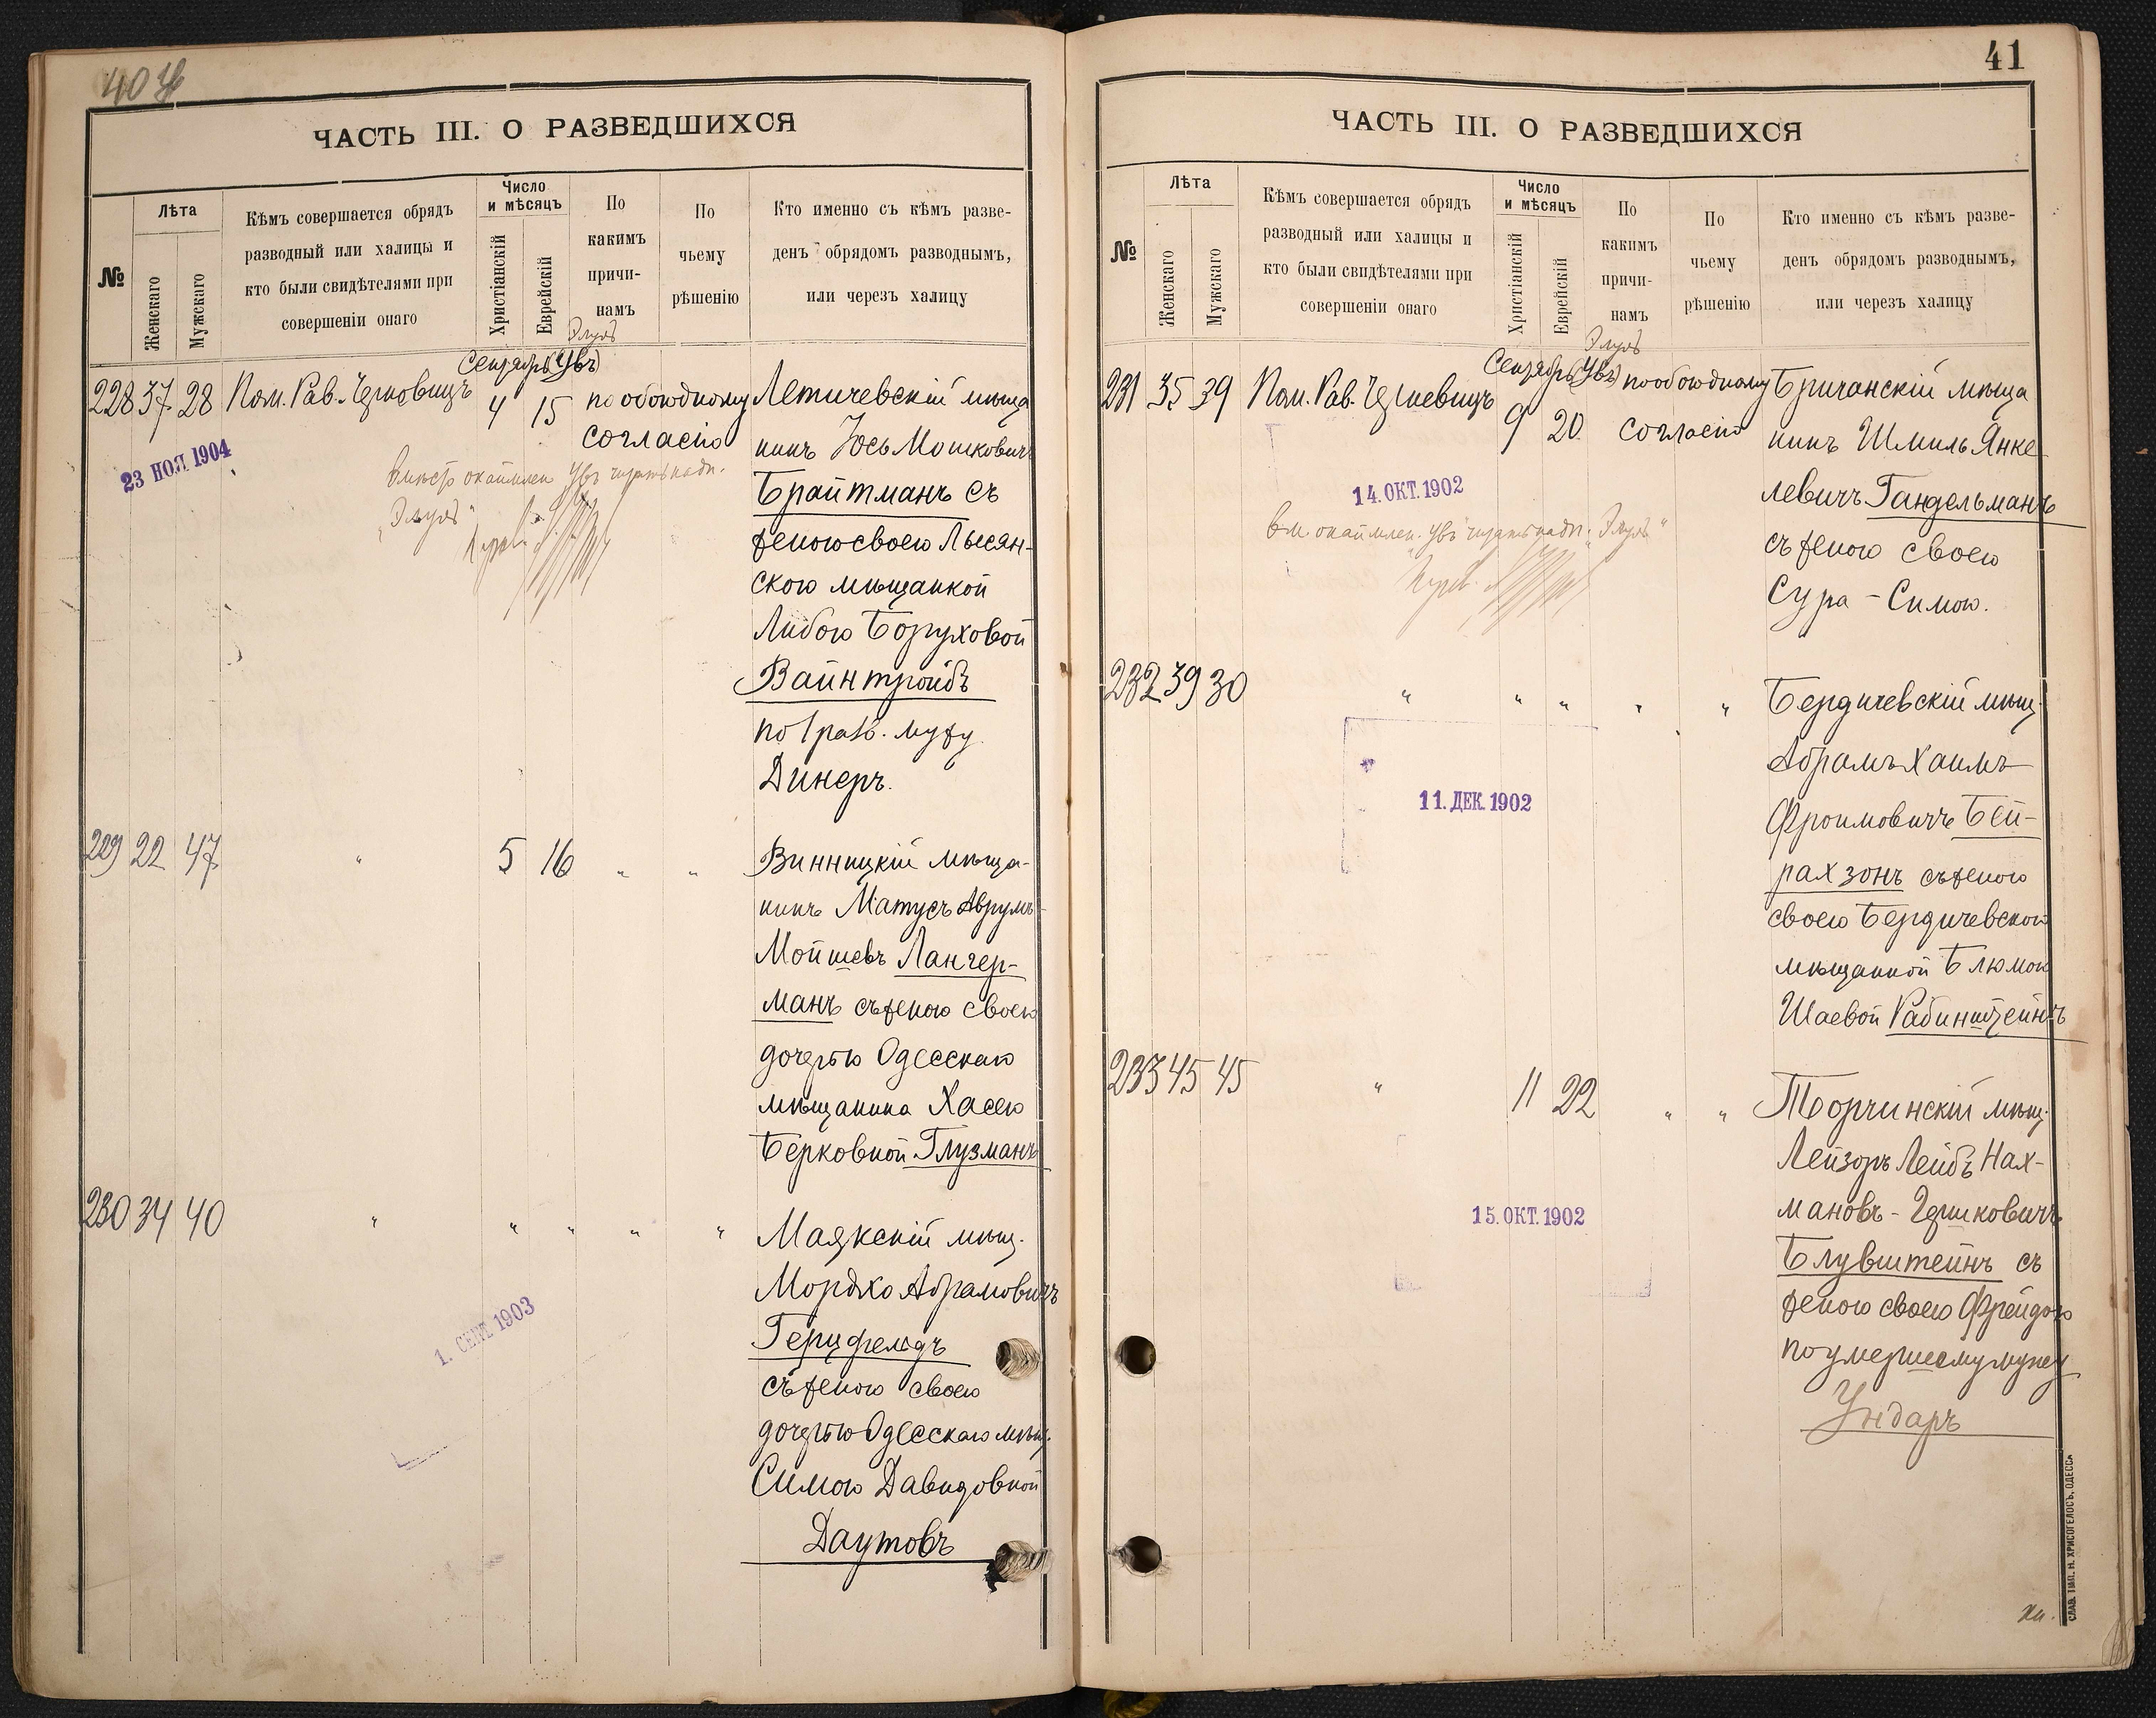 40
ЧАСТЬ III. О РАЗВЕДШИХСЯ
№
Лѣта
Женскаго
Мужскаго
Кѣмъ совершается обрядъ
разводный или халицы и
кто были свидѣтелями при
совершеніи онаго
Число
и мѣсяцъ
Христіанскій
Еврейскій
По
какимъ
причи-
намъ
По
чьему
рѣшенію
Кто именно съ кѣмъ разве-
денъ обрядомъ разводнымъ,
или черезъ халицу
Элулъ
Сентябрь
228 37 28 Пом. Рав. Черновицъ 4 15 по обоюдному
согласію
23 НОЯ 1904
"Элулъ"
Летичевскій мѣща
нинъ Іось Мошковичъ
Брайтманъ съ
женою своею Лысян-
скою мѣщанкой
Либою Боруховой
Вайнтройбъ
по I разв. мужу
Динеръ.
229 22 47 " 5 16 " "
Винницкій мѣща-
нинъ Матусъ Аврумъ-
Мойшевъ Лангер-
манъ съ женою своею
дочерью Одесскаго
мѣщанина Хасею
Берковной Глузманъ
230 34 40 " " " " "
1. СЕНТ. 1903
Маякскій мѣщ.
Мордко Абрамовичъ
Герцфельдъ
съ женою своею
дочерью Одесскаго мѣщ.
Симою Давидовной
Даутовъ
41
ЧАСТЬ III. О РАЗВЕДШИХСЯ
№
Лѣта
Женскаго
Мужскаго
Кѣмъ совершается обрядъ
разводный или халицы и
кто были свидѣтелями при
совершеніи онаго
Число
и мѣсяцъ
Христіанскій
Еврейскій
По
какимъ
причи-
намъ
По
чьему
рѣшенію
Кто именно съ кѣмъ разве-
денъ обрядомъ разводнымъ,
или черезъ халицу
Элулъ
Сентябрь
231 35 39 Пом. Рав. Черновицъ 9 20 по обоюдному
согласію
14. ОКТ. 1902
Бричанскій мѣща
нинъ Шмиль Янке-
левичъ Гандельманъ
съ женою своею
Сура-Симою.
232 39 30 " " " " "
11. ДЕК. 1902
Бердичевскій мѣщ.
Абрамъ Хаимъ
Фроимовичъ Бей-
рахзонъ съ женою
своею Бердичевскою
мѣщанкой Блюмою
Шаевой Рабинштейнъ
233 45 45 " 11 22 " "
15. ОКТ. 1902
Торчинскій мѣщ.
Лейзоръ Лейбъ Нах-
мановъ-Гершковичъ
Блувштейнъ съ
женою своею Фрейдою
по умершему мужу
Ундаръ
СЛАВ. ТИП. Н. ХРИСОГЕЛОСЪ, ОДЕССА